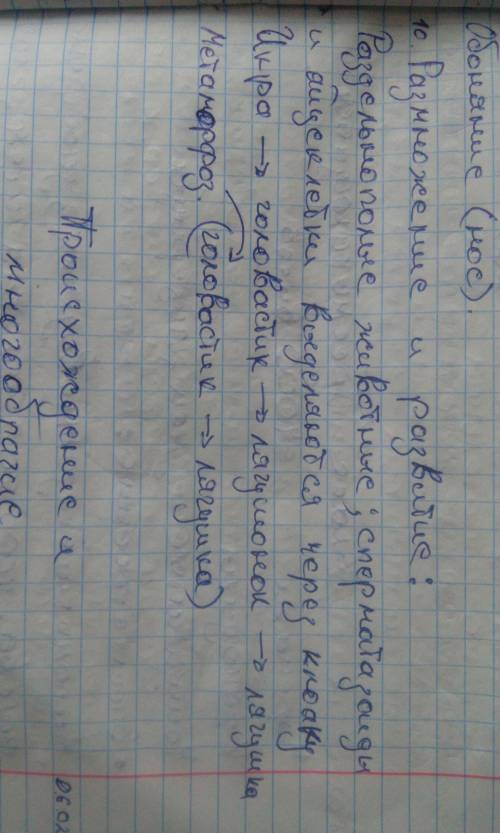 Обоняние (нос).
10. Размножение и развитие:
Раздельнополые животные; сперматазоиды
и яйцеклетки выделяются через клоаку
Икра → головастик → лягушонок → лягушка
Метаморфоз. (головастик → лягушка)
06.02
Происхождение и
многообразие